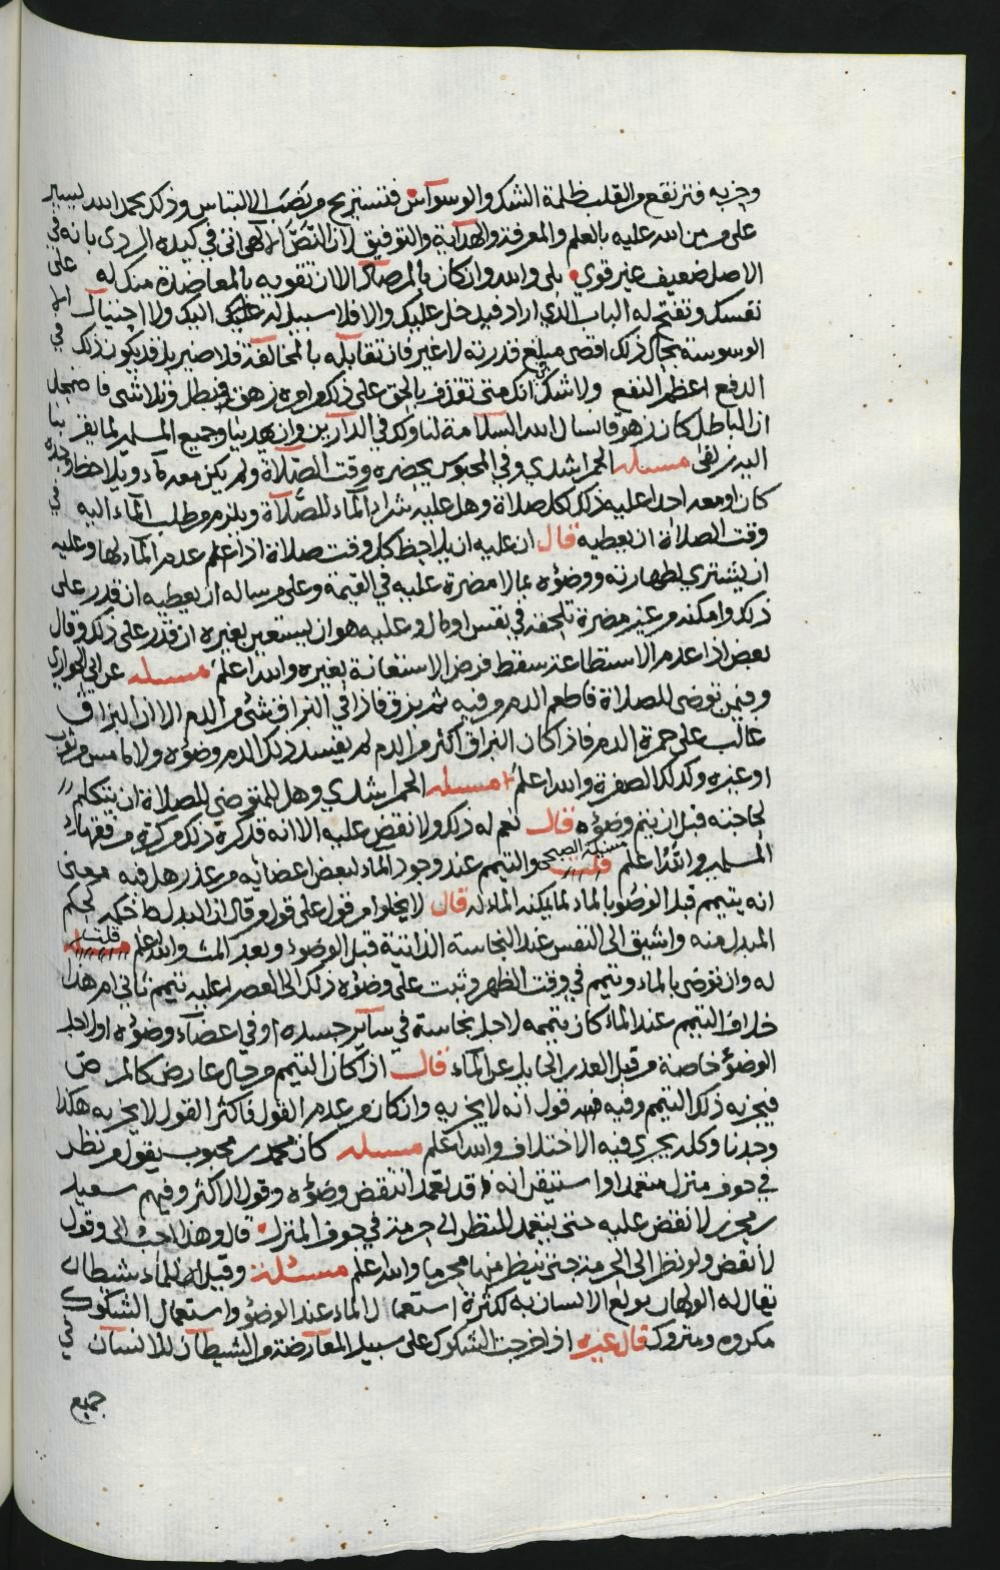 وحزبه فترتفع من القلب ظلمة الشك والوسواس فتستريح من نصب الالتباس وذلك بحمد الله ليسير
على من من الله عليه بالعلم والمعرفة والهداية والتوفيق لان النص الالهي اتى في كيده الردي بانه في
الاصل ضعيف غير قوي بلى والله وان كان بالمرصاد الا ان تقويه بالمعاضدة منك له على
نفسك وتفتح له الباب الذي اراد فيدخل عليك والا فلا سبيل له عليك اليك ولا احتيال
الوسوسة بحال ذلك اقصى مبلغ قدرته لا غير فان تقابله بالمخالفة فلا ضير بل قد يكون ذلك في
الدفع اعظم النفع ولا شك انك متى تقذف بالحق على ذلك زهق فبطل وتلاشى فاضمحل
ان الباطل كان زهوقا نسال الله السلامة لنا ولك في الدارين وان يهدينا وجميع المسلمين لما يقربنا
اليه زلفى مسئله الحمراشدي وفي المحبوس يحضره وقت الصلاة ولم يكن معه ماء ويلاحظ
كان او معه احد اعليه ذلك كل صلاة وهل عليه شراء الماء للصلاة ويلزم من طلب الماء اليه في
وقت الصلاة ان يعطيه قال ان عليه ان يلاحظ كل وقت صلاة اذا علم عدم الماء لها وعليه
ان يشتري لطهارته ووضوه بما لا مضرة عليه في القيمة وعلى من ساله ان يعطيه ان قدر على
ذلك وامكنه من غير مضرة تلحقه في نفس او مال وعليه هو ان يستعين بغيره ان قدر على ذلك وقال
بعض اذا عدم الاستطاعة سقط فرض الاستعانة بغيره والله اعلم مسئله عن ابي الحواري
وفيمن توضى للصلاة فاطعم الدم من فيه ثم بزق فاذا في البزاق شئ من الدم الا ان البزاق
غالب على حمرة الدم فاذا كان البزاق اكثر من الدم لم يفسد ذلك الدم وضوه ولا ما مس من ثوب
او غيره وكذلك الصفرة والله اعلم مسئله الحمراشدي وهل للمتوضي للصلاة ان يتكلم
لحاجته قبل ان يتم وضوه قال نعم له ذلك ولا نقض عليه الا انه قد كره ذلك من كره من فقهاء
المسلمين والله اعلم مسئلة الصبحي قلت والتيمم عند وجود الماء لبعض اعضائه من عذر هل فيه معنى
انه يتيمم قبل الوضو بالماء لما يمكنه الماء له قال لا يخلوا من قول على قول من قال ان البدل حكمه كحكم
المبدل منه واشيق الى النفس عند النجاسة الذاتية قبل الوضوء وبعد المس والله اعلم مسئله قلت
له وان توضى بالماء وتيمم في وقت الظهر وثبت على وضوه ذلك الى العصر اعليه تيمم ثاني ام هذا
خلاف التيمم عند الماء كان تيممه لاجل نجاسة في ساير جسده او في اعضاء وضوه او لاجل
الوضوء خاصة من قبل العذر الحايل عن الماء قال اذا كان التيمم من حال عارض كالمرض
فيجزيه ذلك التيمم وفيه قول انه لا يجزيه وان كان من عدم القول فاكثر القول لا يجزيه هكذا
وجدنا وكله يجري فيه الاختلاف والله اعلم مسئله كان محمد بن محبوب يقول من نظر
في جوف منزل متعمدا واستيقن انه قد تعمد انتقض وضوه وقول الاكثر وفيهم سعيد
بن محرز لا نقض عليه حتى يتعمد للنظر الى حرمة في جوف المنزل قال وهذا احب الى وقول
لا نقض ولو نظر الى الحرمة حتى ينظر منها محرما والله اعلم مسئلة وقيل ان للماء شيطان
يقال له الولهان يولع الانسان به لكثرة استعمال الماء عند الوضوء واستعمال الشكوك
مكروه ومتروك قال غيره اذا خرجت الشكوك على سبيل المعارضة من الشيطان للانسان في
جميع